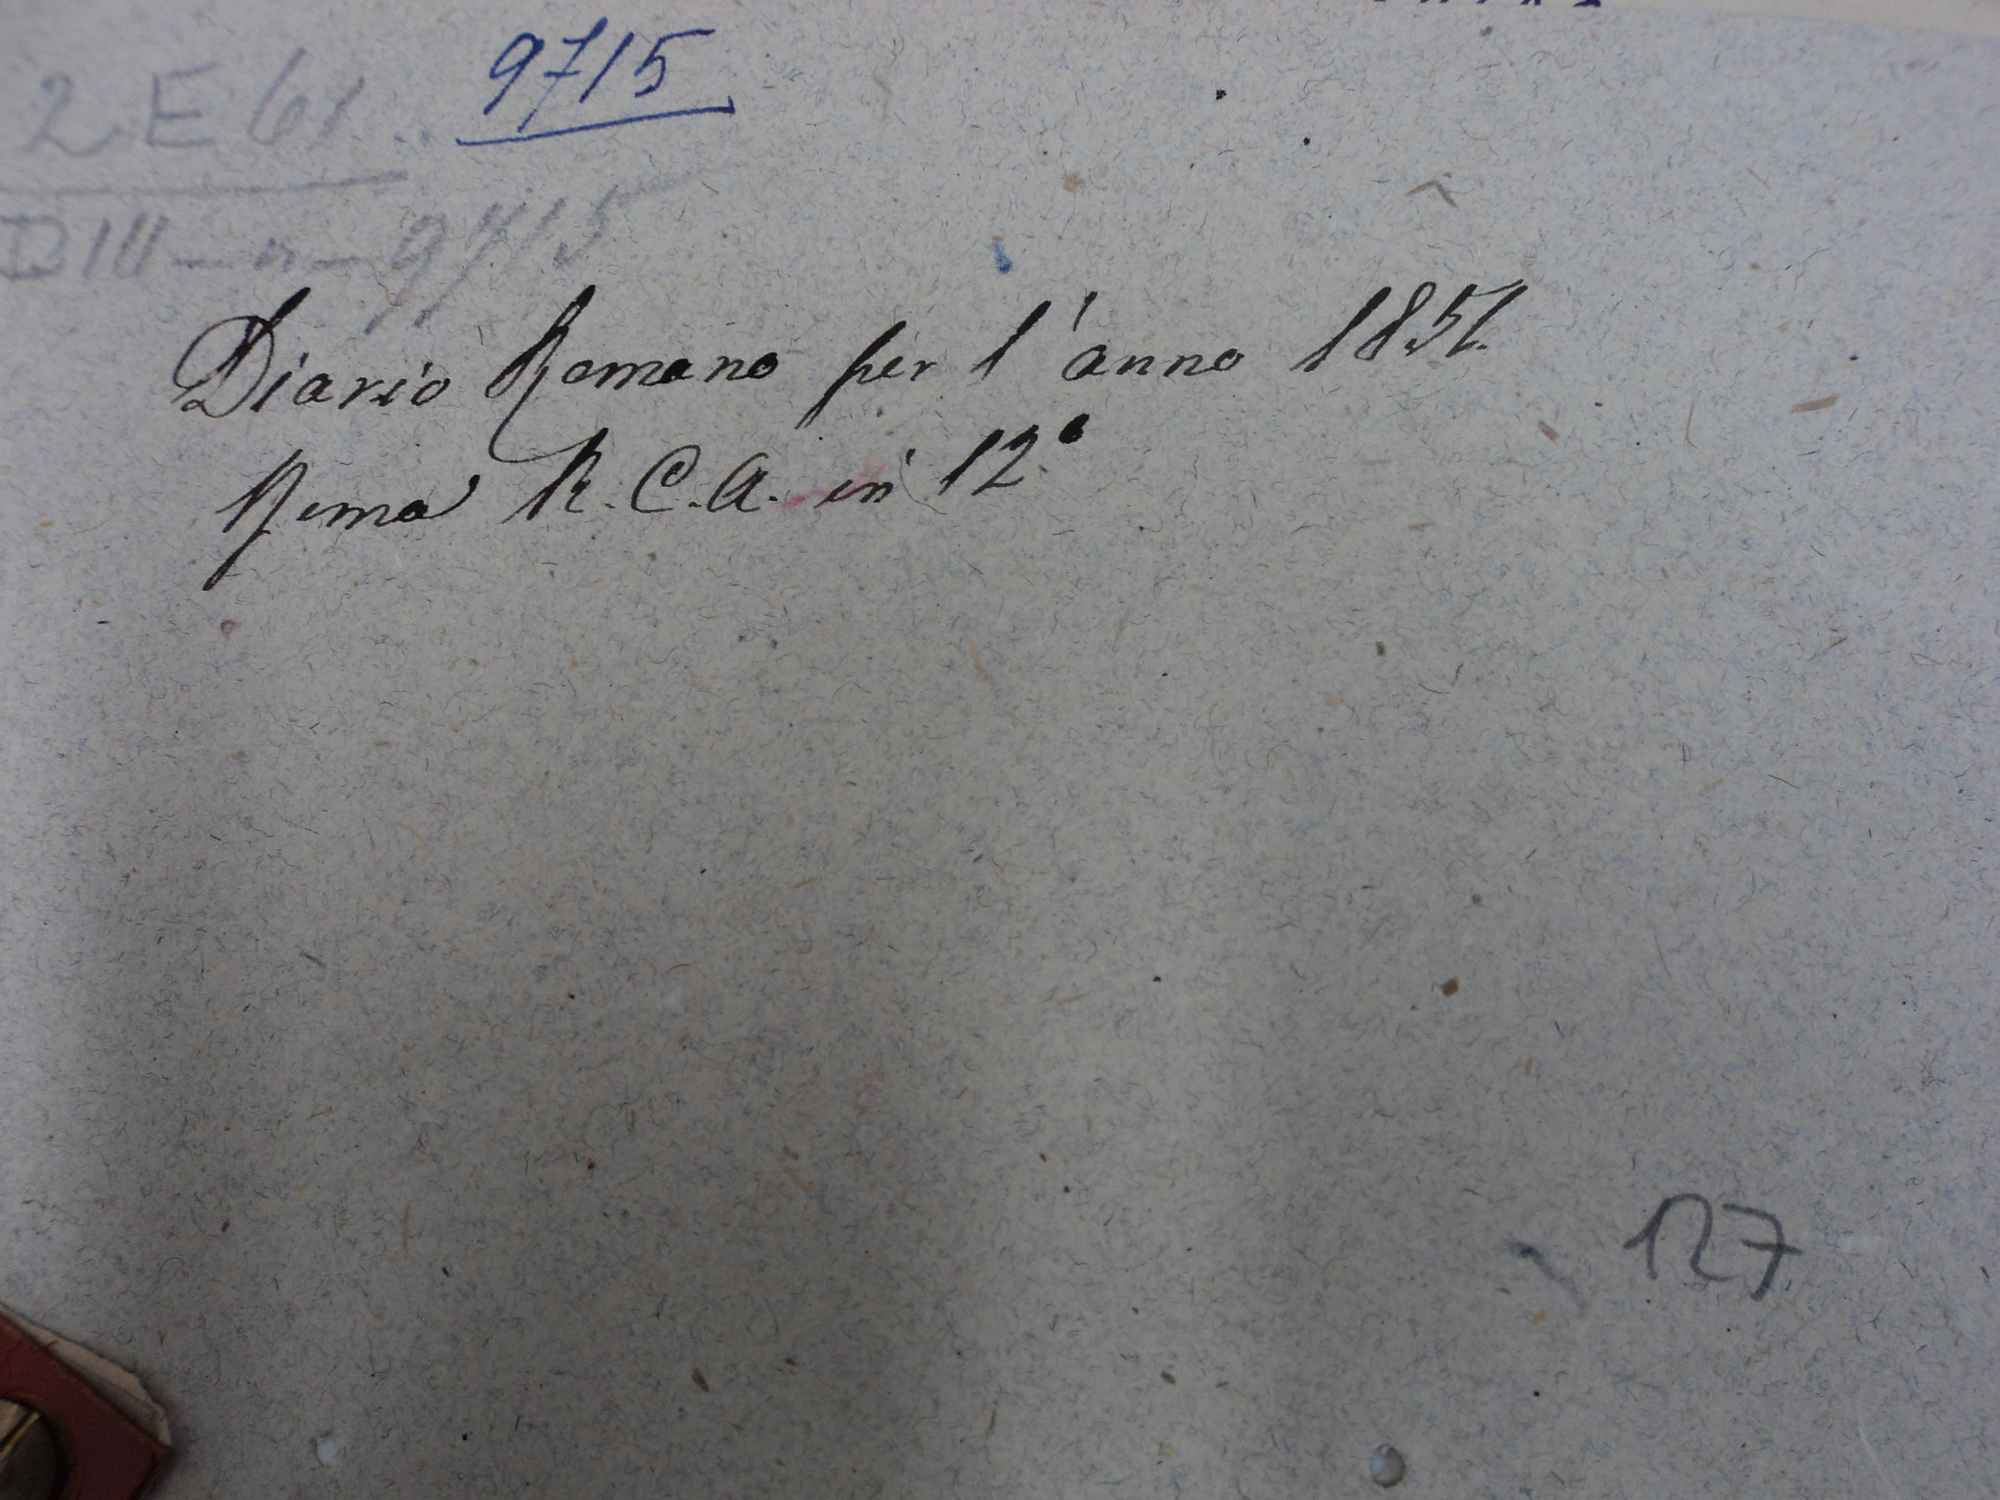 2 E 61
9715
D III - n - 9715
Diario Romano per l'anno 1851.
Roma R. C. A. in 12.°
127